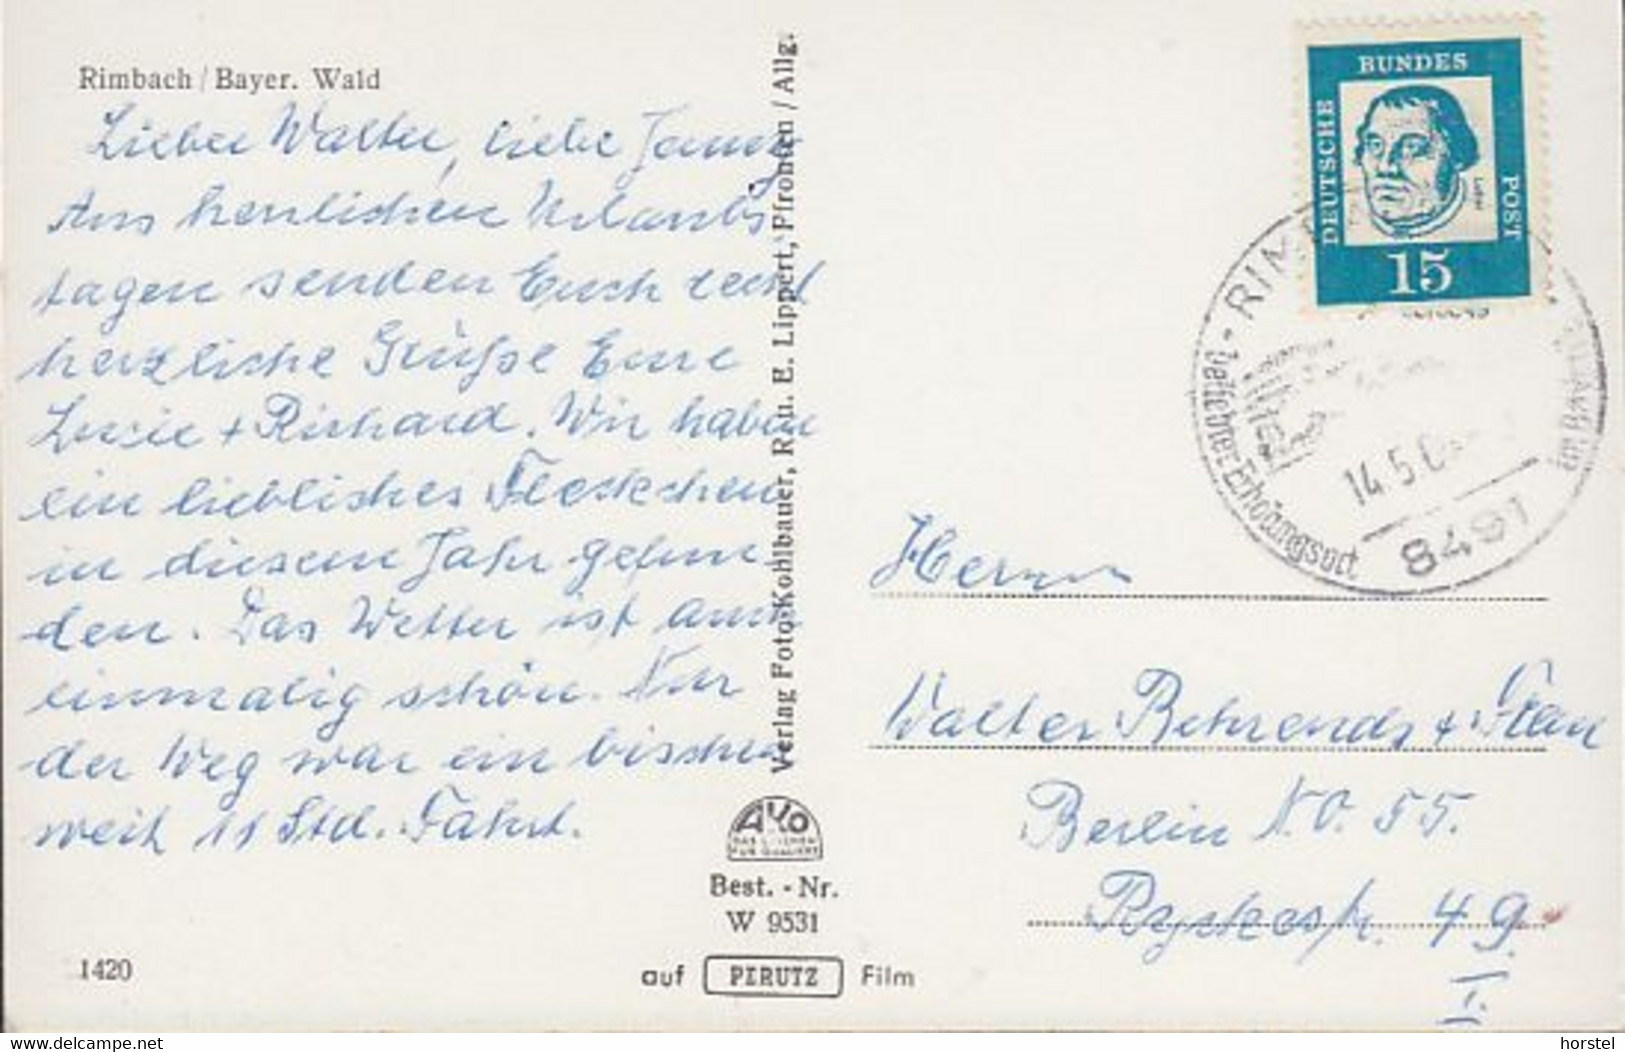 Rimbach / Bayer. Wald
Lieber Walter, liebe Jenny
Aus herrlichen Urlaubs
tagen senden Euch recht
herzliche Grüße Eure
Lucie + Richard. Wir haben
ein liebliches Fleckchen
in diesem Jahr gefun
den. Das Wetter ist auch
einmalig schön. Nur
der Weg war ein bisschen
weit 11 Std. Fahrt.
1420
Verlag Foto-Kohlbauer, R. u. E. Lippert, Pfronten / Allg.
AKO
Best. - Nr.
W 9531
auf PERUTZ Film
DEUTSCHE
BUNDES
POST
Luther
15
14.5.6
8491
Herrn
Walter Behrends + Frau
Berlin N.O. 55.
Rykestr. 49.
I.
www.delcampe.net
horstel